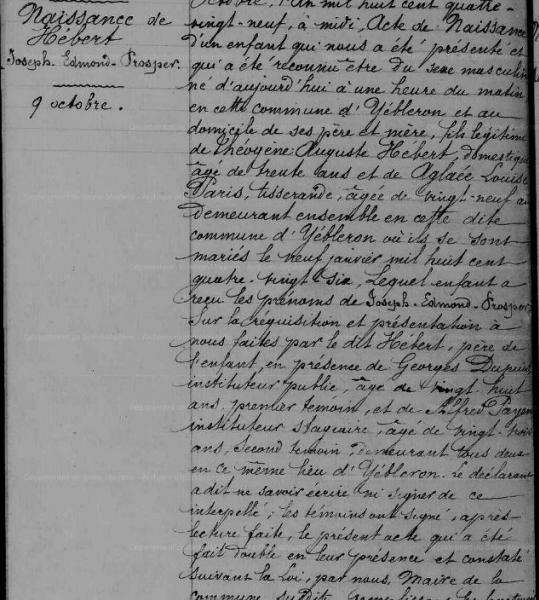 Naissance de
Hébert
Joseph-Edmond-Prosper.
9 octobre.
Octobre, l'An mil huit cent quatre-
vingt-neuf, à midi, Acte de Naissance
d'un enfant qui nous a été présenté et
qui a été reconnu être du sexe masculin
né d'aujourd'hui à une heure du matin
en cette commune d'Yébleron et au
domicile de ses père et mère, fils légitime
de Théogène Auguste Hébert, domestique
âgé de trente ans et de Aglaée Louise
Paris, tisserande, âgée de vingt-neuf an
demeurant ensemble en cette dite
commune d'Yébleron où ils se sont
mariés le neuf janvier mil huit cent
quatre-vingt-six, Lequel enfant a
reçu les prénoms de Joseph-Edmond-Prosper
Sur la réquisition et présentation à
nous faites par le dit Hébert, père de
l'enfant, en présence de Georges Dupuis
instituteur public, âgé de vingt-huit
ans, premier témoin, et de Alfred Payen
instituteur stagiaire, âgé de vingt-trois
ans, second témoin, demeurant tous deux
en ce même lieu d'Yébleron. Le déclarant
a dit ne savoir écrire ni signer de ce
interpellé; les témoins ont signé, après
lecture faite, le présent acte qui a été
fait double en leur présence et constaté
suivant la Loi, par nous, Maire de la
commune susdite